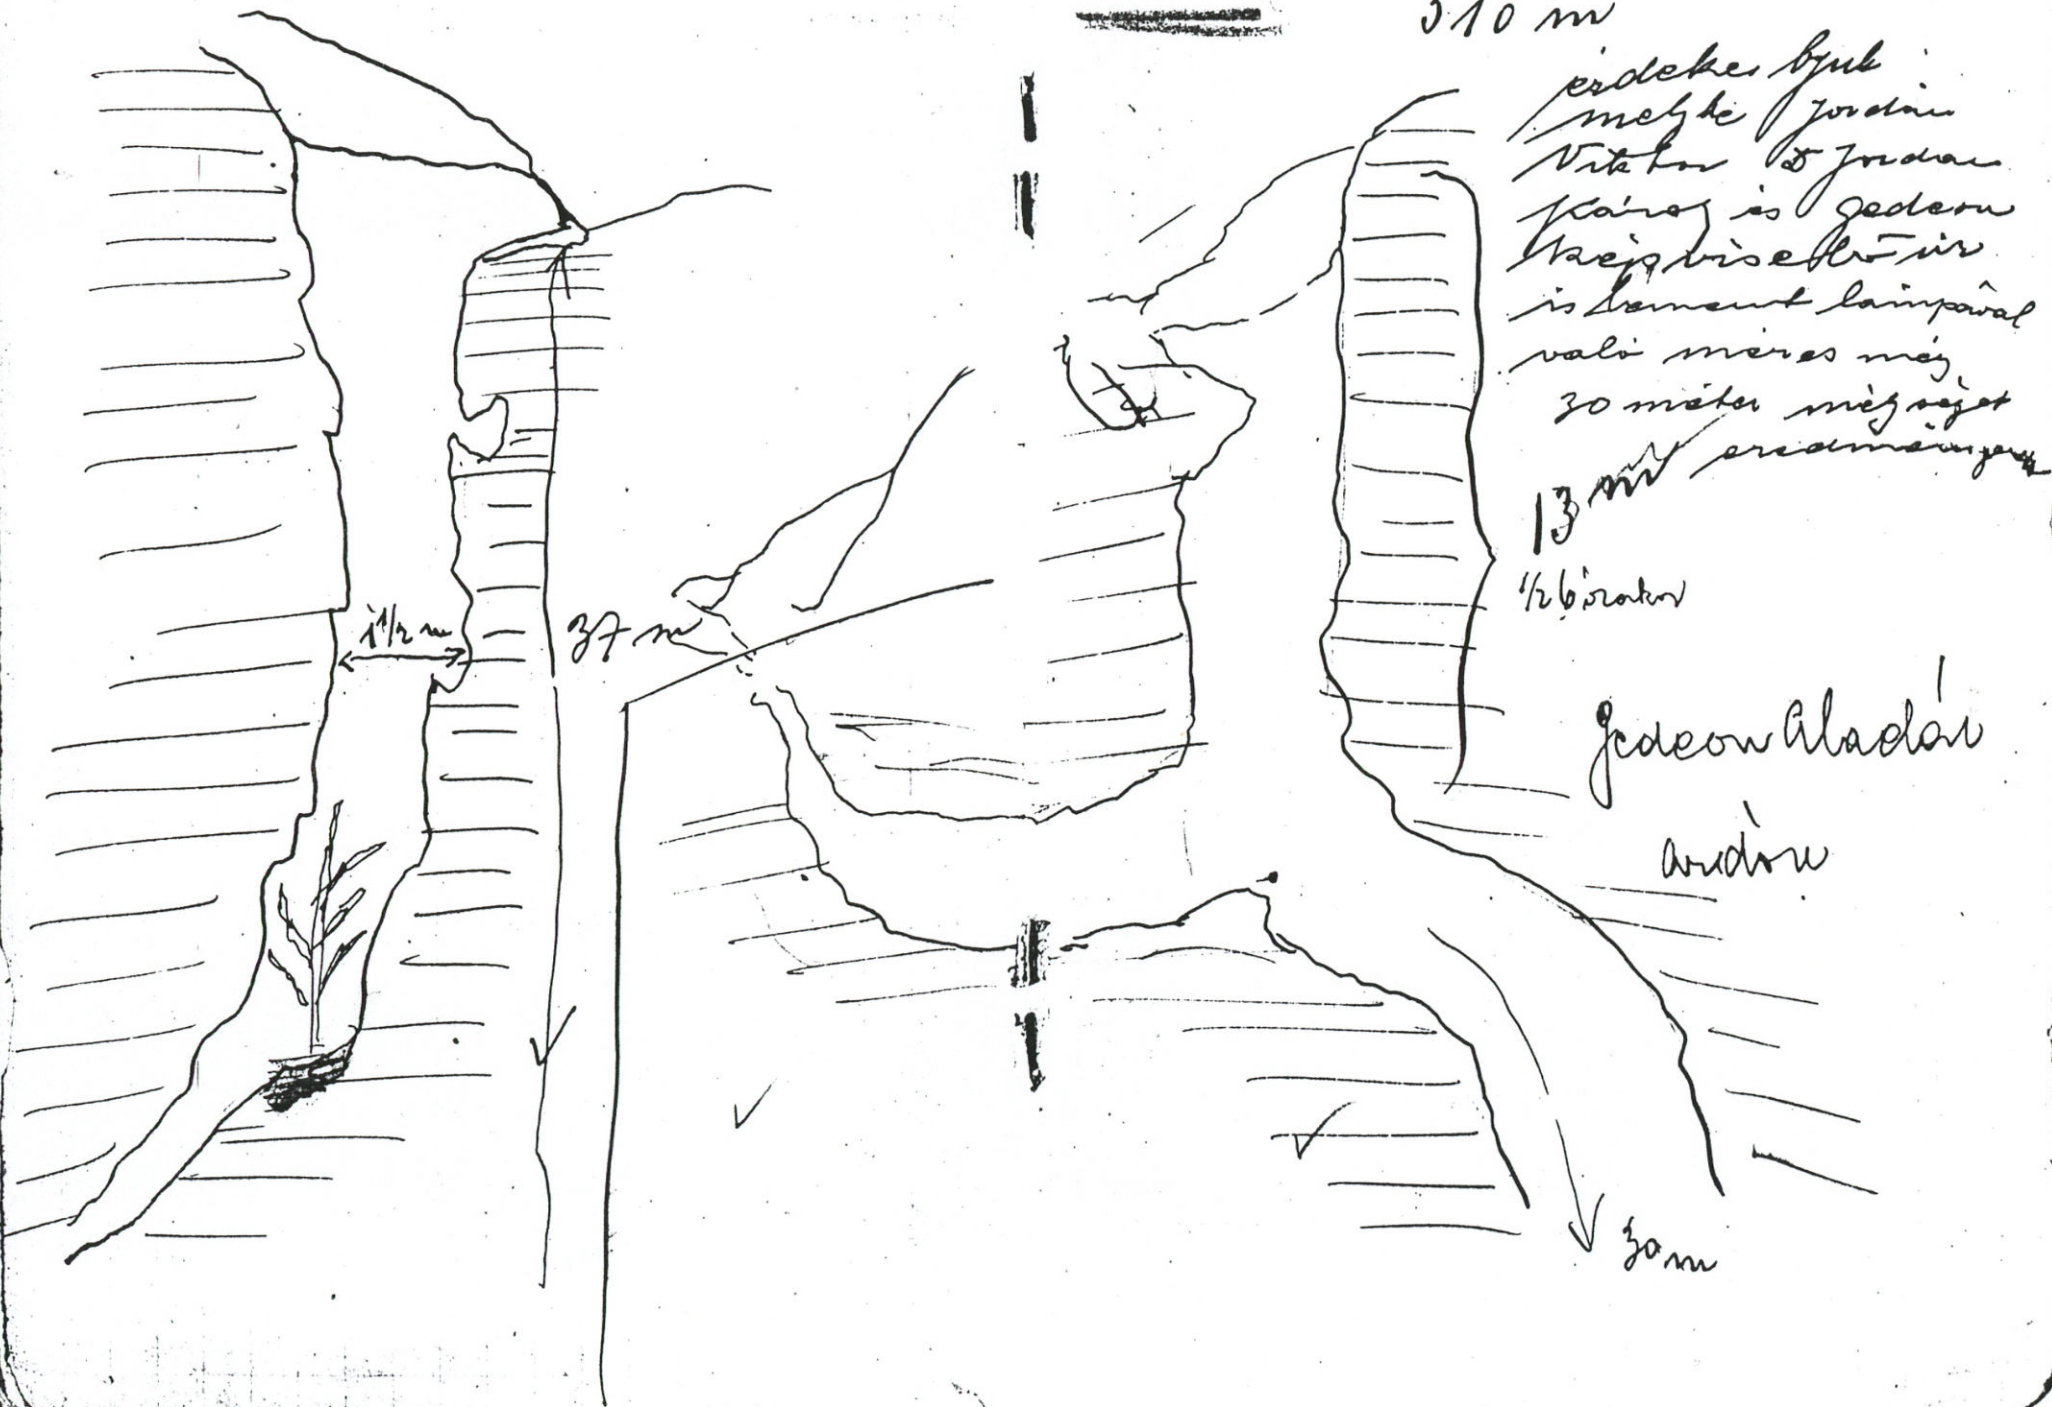 310 m
érdekes lyuk
melybe Jordán
Viktor Jordán
Károly és Gedeon
képviselő úr
is lement lámpával
való mérés még
30 méter mélységet
13 m
1/2 6 órakor
1 1/2 m
37 m
Gedeon Aladár
30 m